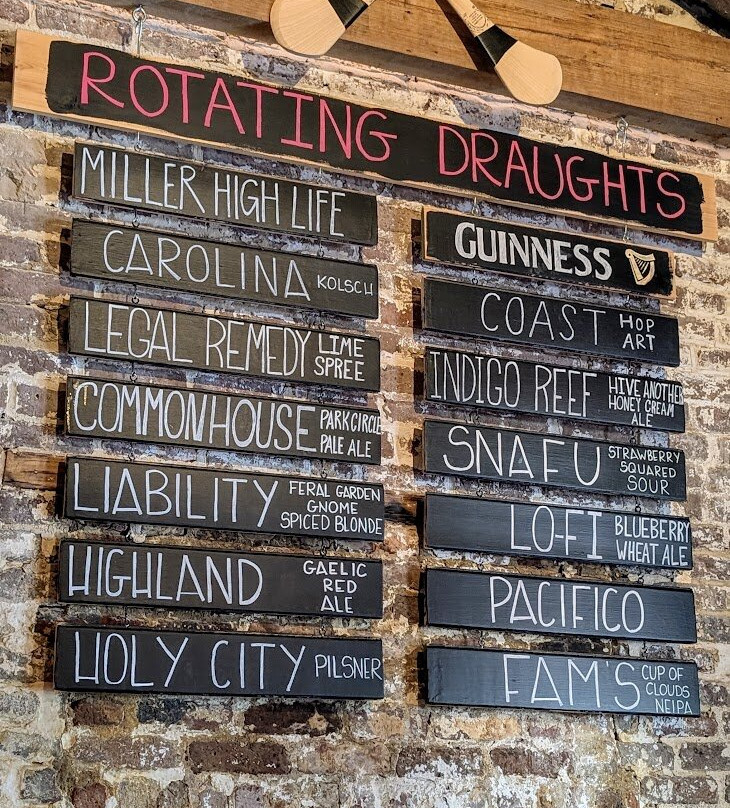 ROTATING DRAUGHTS
MILLER HIGH LIFE
CAROLINA KOLSCH
LEGAL REMEDY LIME
SPREE
COMMONHOUSE PARK CIRCLE
PALE ALE
LIABILITY FERAL GARDEN
GNOME
SPICED BLONDE
HIGHLAND GAELIC
RED
ALE
HOLY CITY PILSNER
GUINNESS
COAST HOP
ART
INDIGO REEF HIVE ANOTHER
HONEY CREAM
ALE
SNAFU STRAWBERRY
SQUARED
SOUR
LO-FI BLUEBERRY
WHEAT ALE
PACIFICO
FAM'S CUP OF
CLOUDS
NEIPA